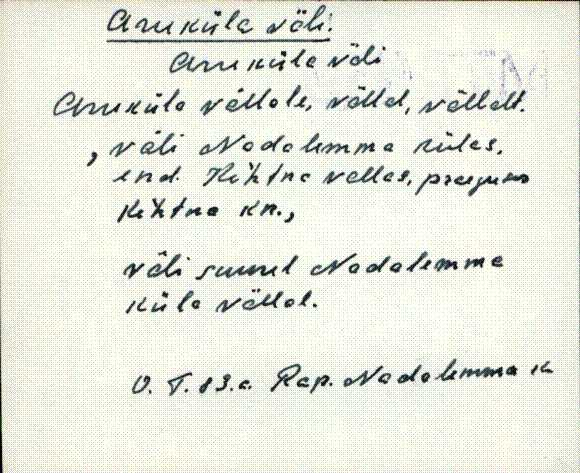 Aruküla väli.
Aruküla väli
Aruküla vällale, vällal, vällalt.
, väli Nadalemma külas,
end. Kehtna vallas, praegune
Kehtna kn.,
väli suurel Nadalemma
küla vällal.
O. T. 83.a. Rap. Nadalemma k